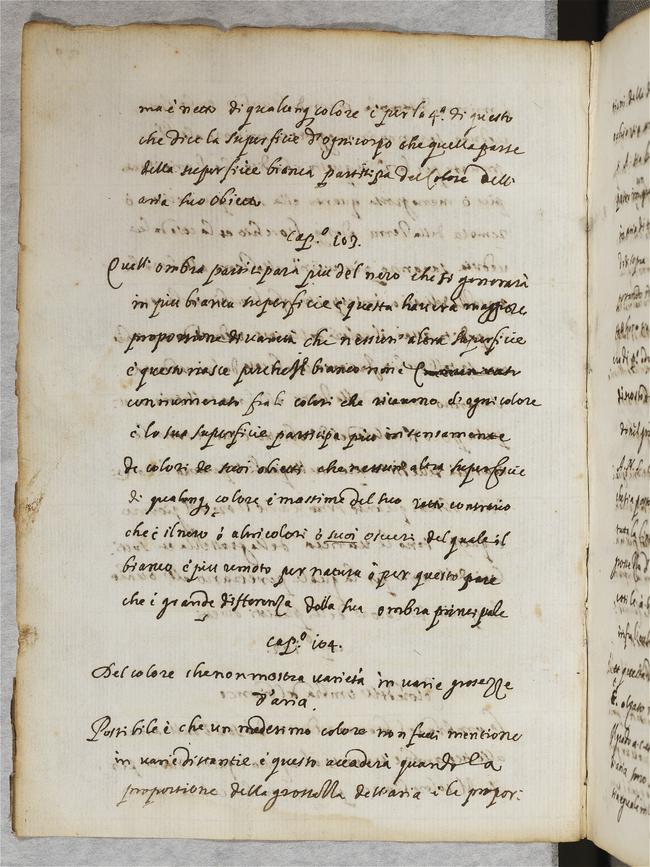 ma è netto di qualunq colore è per la 4.ª di questo
che dice la superficie d'ogni corpo che quella parte
della superfice bianca partitipa del Colore dell
aria suo obietto
Cap.º 103.
Quell ombra participarà piu del nero che si generarà
in piu bianca superficie è questa haverà maggiore
proportione di varietà che nessun' altra superficie
è questo nasce perche il bianco non è
connumerato fra li colori che ricevono d'ogni colore
è la sua superficie participa piu intensamente
de colori de suoi obietti che nessun altra superficie
di qualonq colore è massime del suo retto contrario
che è il nero ò altri colori ò suoi oscuri del quale il
bianco è piu remoto per natura ò per questo pare
che è grande differenza dalla sua ombra principale
Cap.º 104.
Del colore che non mostra varietà in varie grosezze
d'aria.
Possibile è che un medesimo colore non facci mentione
in varie distantie è questo accaderà quando la
proportione della grossezza dell aria è le propor: